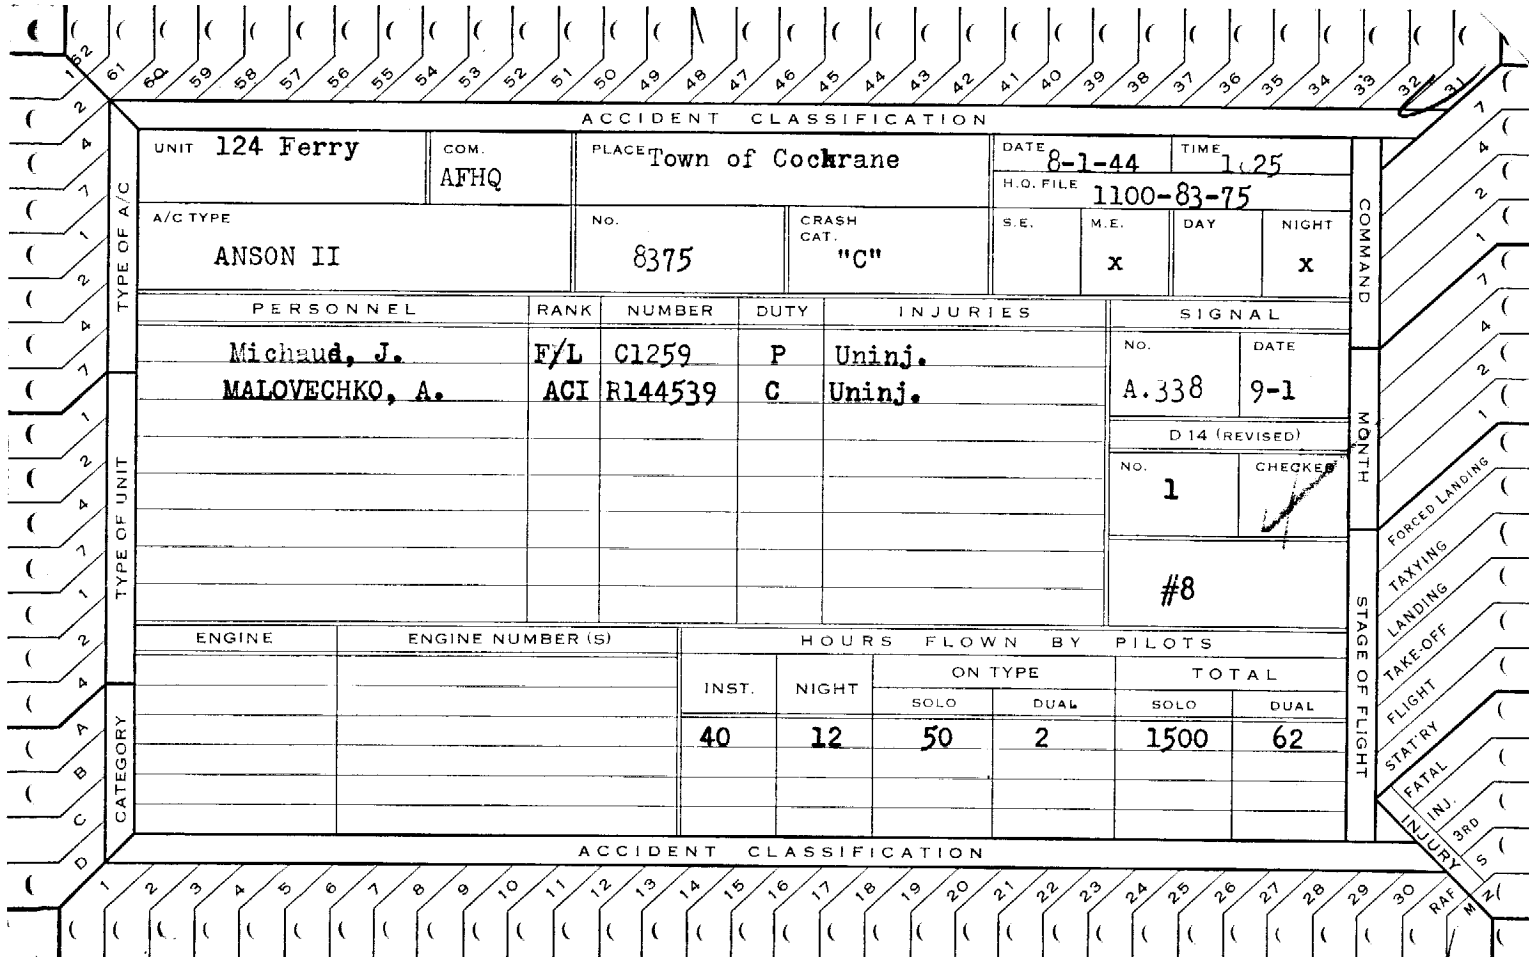 62 61 60 59 58 57 56 55 54 53 52 51 50 49 48 47 46 45 44 43 42 41 40 39 38 37 36 35 34 33 32 31
ACCIDENT CLASSIFICATION
UNIT 124 Ferry
COM. AFHQ
PLACE Town of Cochrane
DATE 8-1-44
TIME
H.Q. FILE 1100-83-75
A/C TYPE ANSON II
No. 8375
CRASH CAT. "C"
S.E.
M.E. x
DAY
NIGHT x
PERSONNEL RANK NUMBER DUTY INJURIES
Michaud, J. F/L C1259 P Uninj.
MALOVECHKO, A. ACI R144539 C Uninj.
SIGNAL
NO. A.338
DATE 9-1
D 14 (REVISED)
NO. 1
CHECKED
#8
ENGINE ENGINE NUMBER (S)
HOURS FLOWN BY PILOTS
INST. NIGHT ON TYPE TOTAL
SOLO DUAL SOLO DUAL
40 12 50 2 1500 62
ACCIDENT CLASSIFICATION
1 2 3 4 5 6 7 8 9 10 11 12 13 14 15 16 17 18 19 20 21 22 23 24 25 26 27 28 29 30
TYPE OF A/C
1 2 4 7 1 2 4 7
TYPE OF UNIT
1 2 4 7 1 2 4
CATEGORY
A B C D
COMMAND
7 4 2 1
MONTH
7 4 2 1
STAGE OF FLIGHT
FORCED LANDING
TAXYING
LANDING
TAKE-OFF
FLIGHT
STAT'RY
INJURY
FATAL
INJ.
3RD
S
N
M
RAF